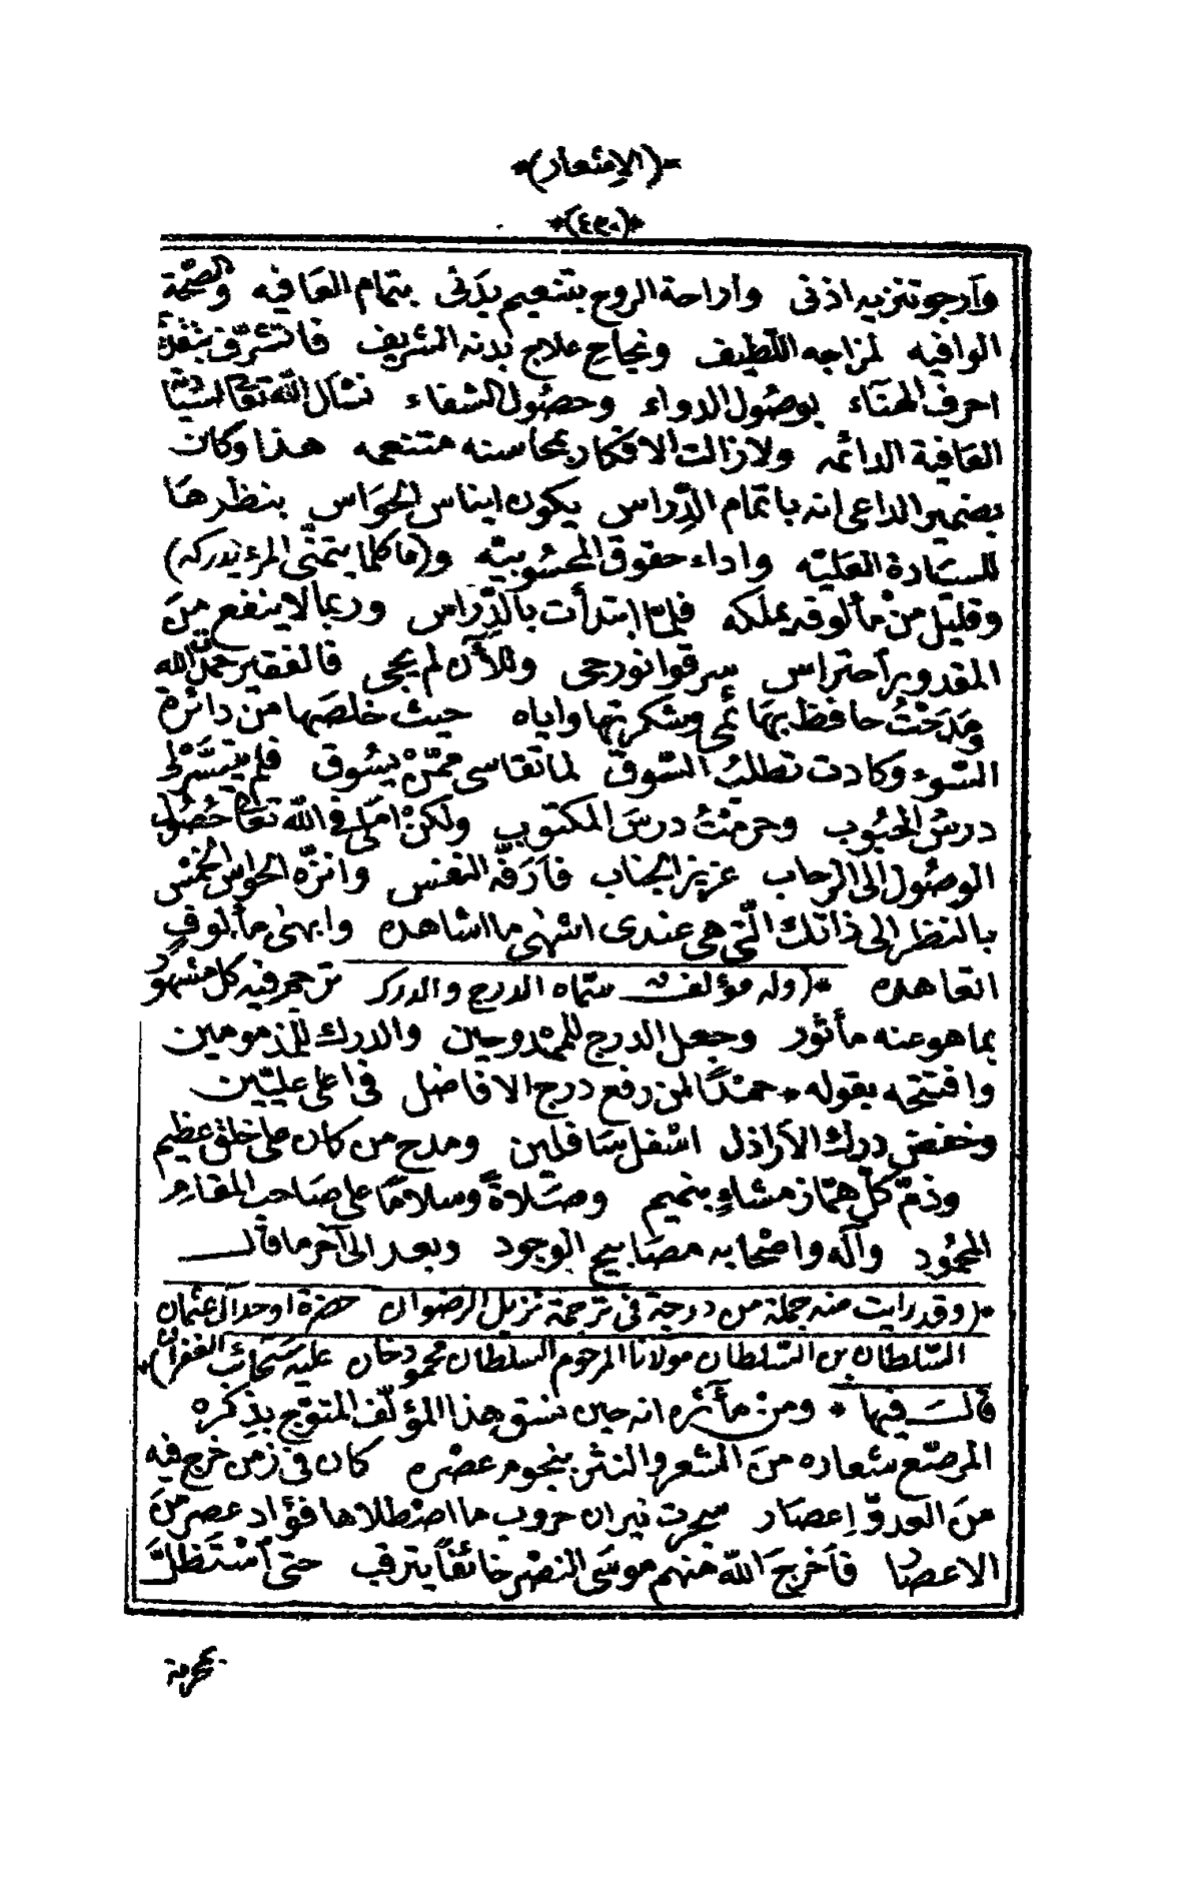 *(الاشعار)*
*(٤٣٠)*
وأرجو تنزيه اذنى وأراحة الروح بتنعيم بدنى بتمام العافيه والصحّة
الوافيه لمزاجه اللّطيف ونجاح علاج بدنه الشريف فاتشرّف بثقل
احرف الهنَاء بوصُول الدواء وحصُول الشفاء نسأل الله تعالى لسيادته
العَافية الدائمه ولازالت الافكار بمحاسنه متنعمه هذا وكان
بضمير الداعى انه باتمام الدِّراس يكون ايناس الحوَاس بنظرها
للسيَادة العَليّه واداء حقوق المحسُوبيّه و(ما كلما يتمنّى المرء يدركه)
وقليل منْ مألوقه يملكه فلمّا ابتدأت بالدِّراس وربما لا ينفع منَ
المقدور احتراس سرقوا نورجى وللأن لم يجى فالفقير حمدت الله
ومَدَحْتُ حافظ بهَائمى وشكرتها واياه حيث خلصَها من دائرة
السّوء وكادت تطلبُ السّوق لما تقاسى ممّنْ يسُوق فلم يتيَسَّر لى
درسُ الحبُوب وحرمْتُ درسَ المكتوب ولكنْ املى فى الله تعالى حُصُول
الوصُول الى الرحاب عزيز الجناب فأرفّه النفس وانزّه الحواس الخمْس
بالنظر الى ذاتك الّتى هى عندى اشهى ما اشاهده وابهى مألوفٍ
اتعاهده *(وله مؤلف سمّاه الدرج والدرك ترجم فيه كل مشهور
بما هو عنه مأثور وجعل الدرج للممدوحين والدرك للمذمومين
وافتتحه بقوله * حمْدًا لمن رفع درج الافاضل فى اعلى عليّين
وخفض درك الأراذل اسْفل سَافلين ومدح من كان على خلق عظيم
وذمّ كلّ همّاز مشاءٍ بنميم وصَلاةً وسلامًا على صَاحب المقام
المحمُود وآله واصْحابه مصَابيح الوجود وبعد الى آخر ما قال
*(وقد رايت منه جملة من درجة فى ترجمة نزيل الرضوان حضرة اوحد آل عثمان
السّلطان بن السّلطان مولانا المرحوم السلطان محمود خان عليه سَحائب الغفران)*
قالَ فيها * ومنْ مآثره انه حين نسق هذا المؤلّف المتوّج بذِكره
المرصّع شعاره منَ الشعر والنثر بنجوم عصْره كان فى زمن خرج فيه
منَ العدوّ إعصَار سجرت نيران حروب ما اصْطلاها فؤاد عصر منَ
الاعصَار فأخرجَ الله منهم موسَى النصْر خائفًا يترقب حتى اسْتَظلَّ